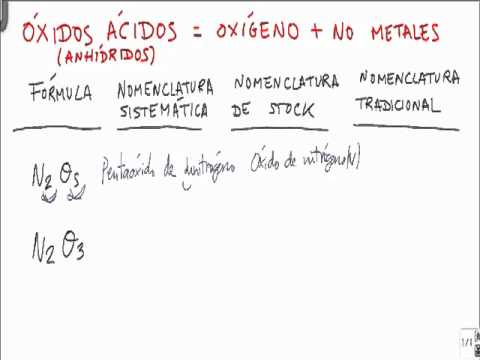 ÓXIDOS ÁCIDOS = OXÍGENO + NO METALES
(ANHÍDRIDOS)
FÓRMULA NOMENCLATURA SISTEMÁTICA NOMENCLATURA DE STOCK NOMENCLATURA TRADICIONAL
N2O5 Pentaóxido de dinitrógeno Óxido de nitrógeno(V)
N2O3
1/1